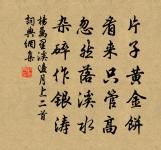 片子黄金饼
看来只管高
忽然落溪水
杂碎作银涛
杨万里溪边月上二首
词典网集